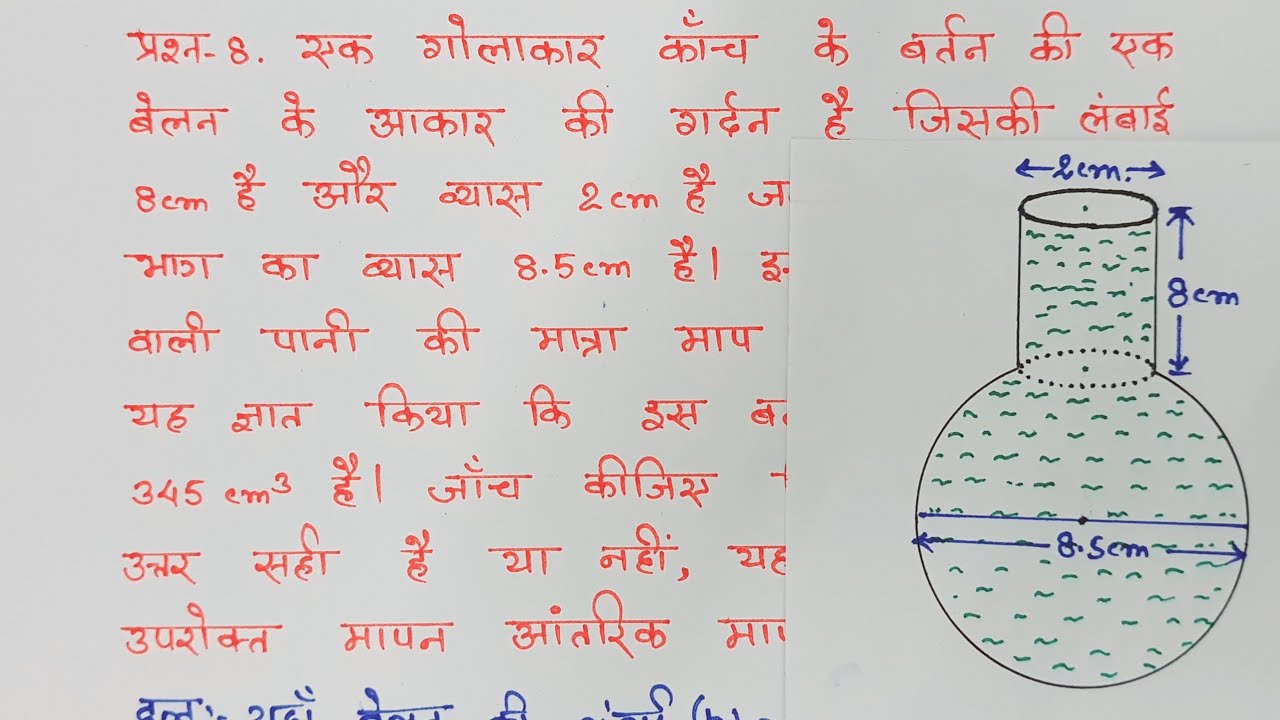 प्रश्न-8. एक गोलाकार काँच के बर्तन की एक
बेलन के आकार की गर्दन है जिसकी लंबाई
8cm है और व्यास 2cm है
भाग का व्यास 8.5cm है।
वाली पानी की मात्रा माप
यह ज्ञात किया कि इस
345 cm³ है। जाँच कीजिए
उत्तर सही है या नहीं, यह
उपरोक्त मापन आंतरिक
हल:- यहाँ बेलन की
2cm.
8cm
8.5cm